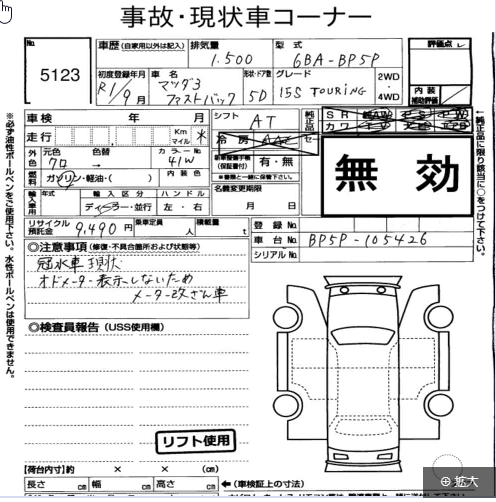 事故・現状車コーナー
No.
5123
車歴 (自家用以外は記入) 排気量 1.500 型式 6BA-BP5P
評価点
内装 補助評価
初度登録年月 R1/9月 車名 マツダ3 ファストバック 形状・ドア数 5D グレード 15S TOURING 2WD 4WD
車検 年 月 シフト AT
走行 Km マイル ✳
冷房
純正品 SR
カワ
無効
外色 元色 クロ 色替 → カラーNo. 41W
車歴 有・無
(保証書付)
※書類と一緒に保管下さい。
燃料 ガソリン・軽油・( ) 内装色
名義変更期限 月 日
輸入車用 年式 輸入区分 ディーラー・並行 ハンドル 左・右
リサイクル預託金 9,490円 乗車定員 人 積載量 t
登録No.
車台No. BP5P-105426
シリアルNo.
◎注意事項 (修復・不具合箇所および状態等)
冠水車現状
オドメーター表示しないため
メーター改ざん車
◎検査員報告 (USS使用欄)
リフト使用
【荷台内寸】約 × × (cm)
長さ cm 幅 cm 高さ cm ←(車検証上の寸法)
※必ず油性ボールペンをご使用下さい。水性ボールペンは使用できません。
←純正品に限り該当に○をつけて下さい。
拡大